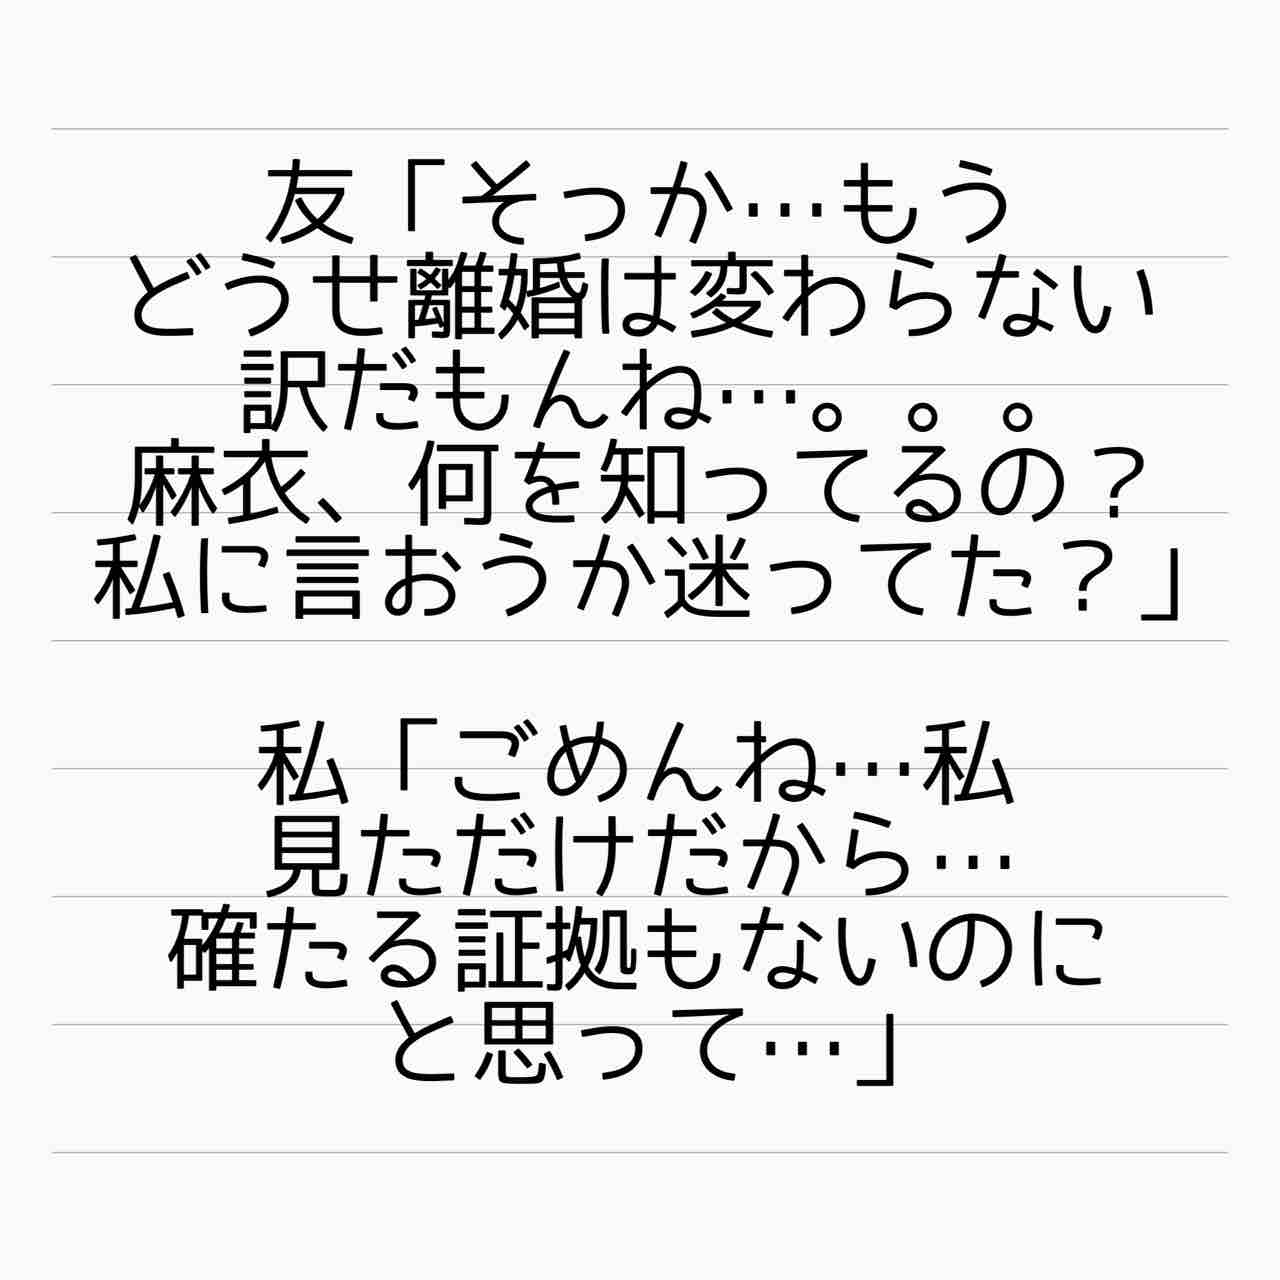 友「そっか…もう
どうせ離婚は変わらない
訳だもんね…。。。
麻衣、何を知ってるの？
私に言おうか迷ってた？」
私「ごめんね…私
見ただけだから…
確たる証拠もないのに
と思って…」